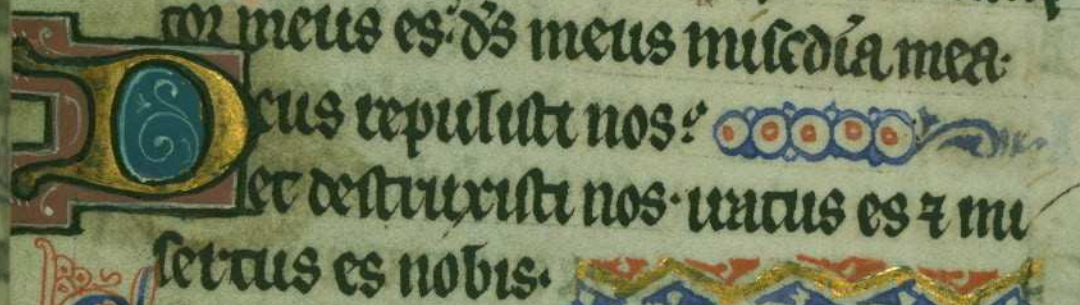 tor meus es: ds meus misc̄dia mea.
Deus repulisti nos:
et destruxisti nos. iratus es ⁊ mi
sertus es nobis.